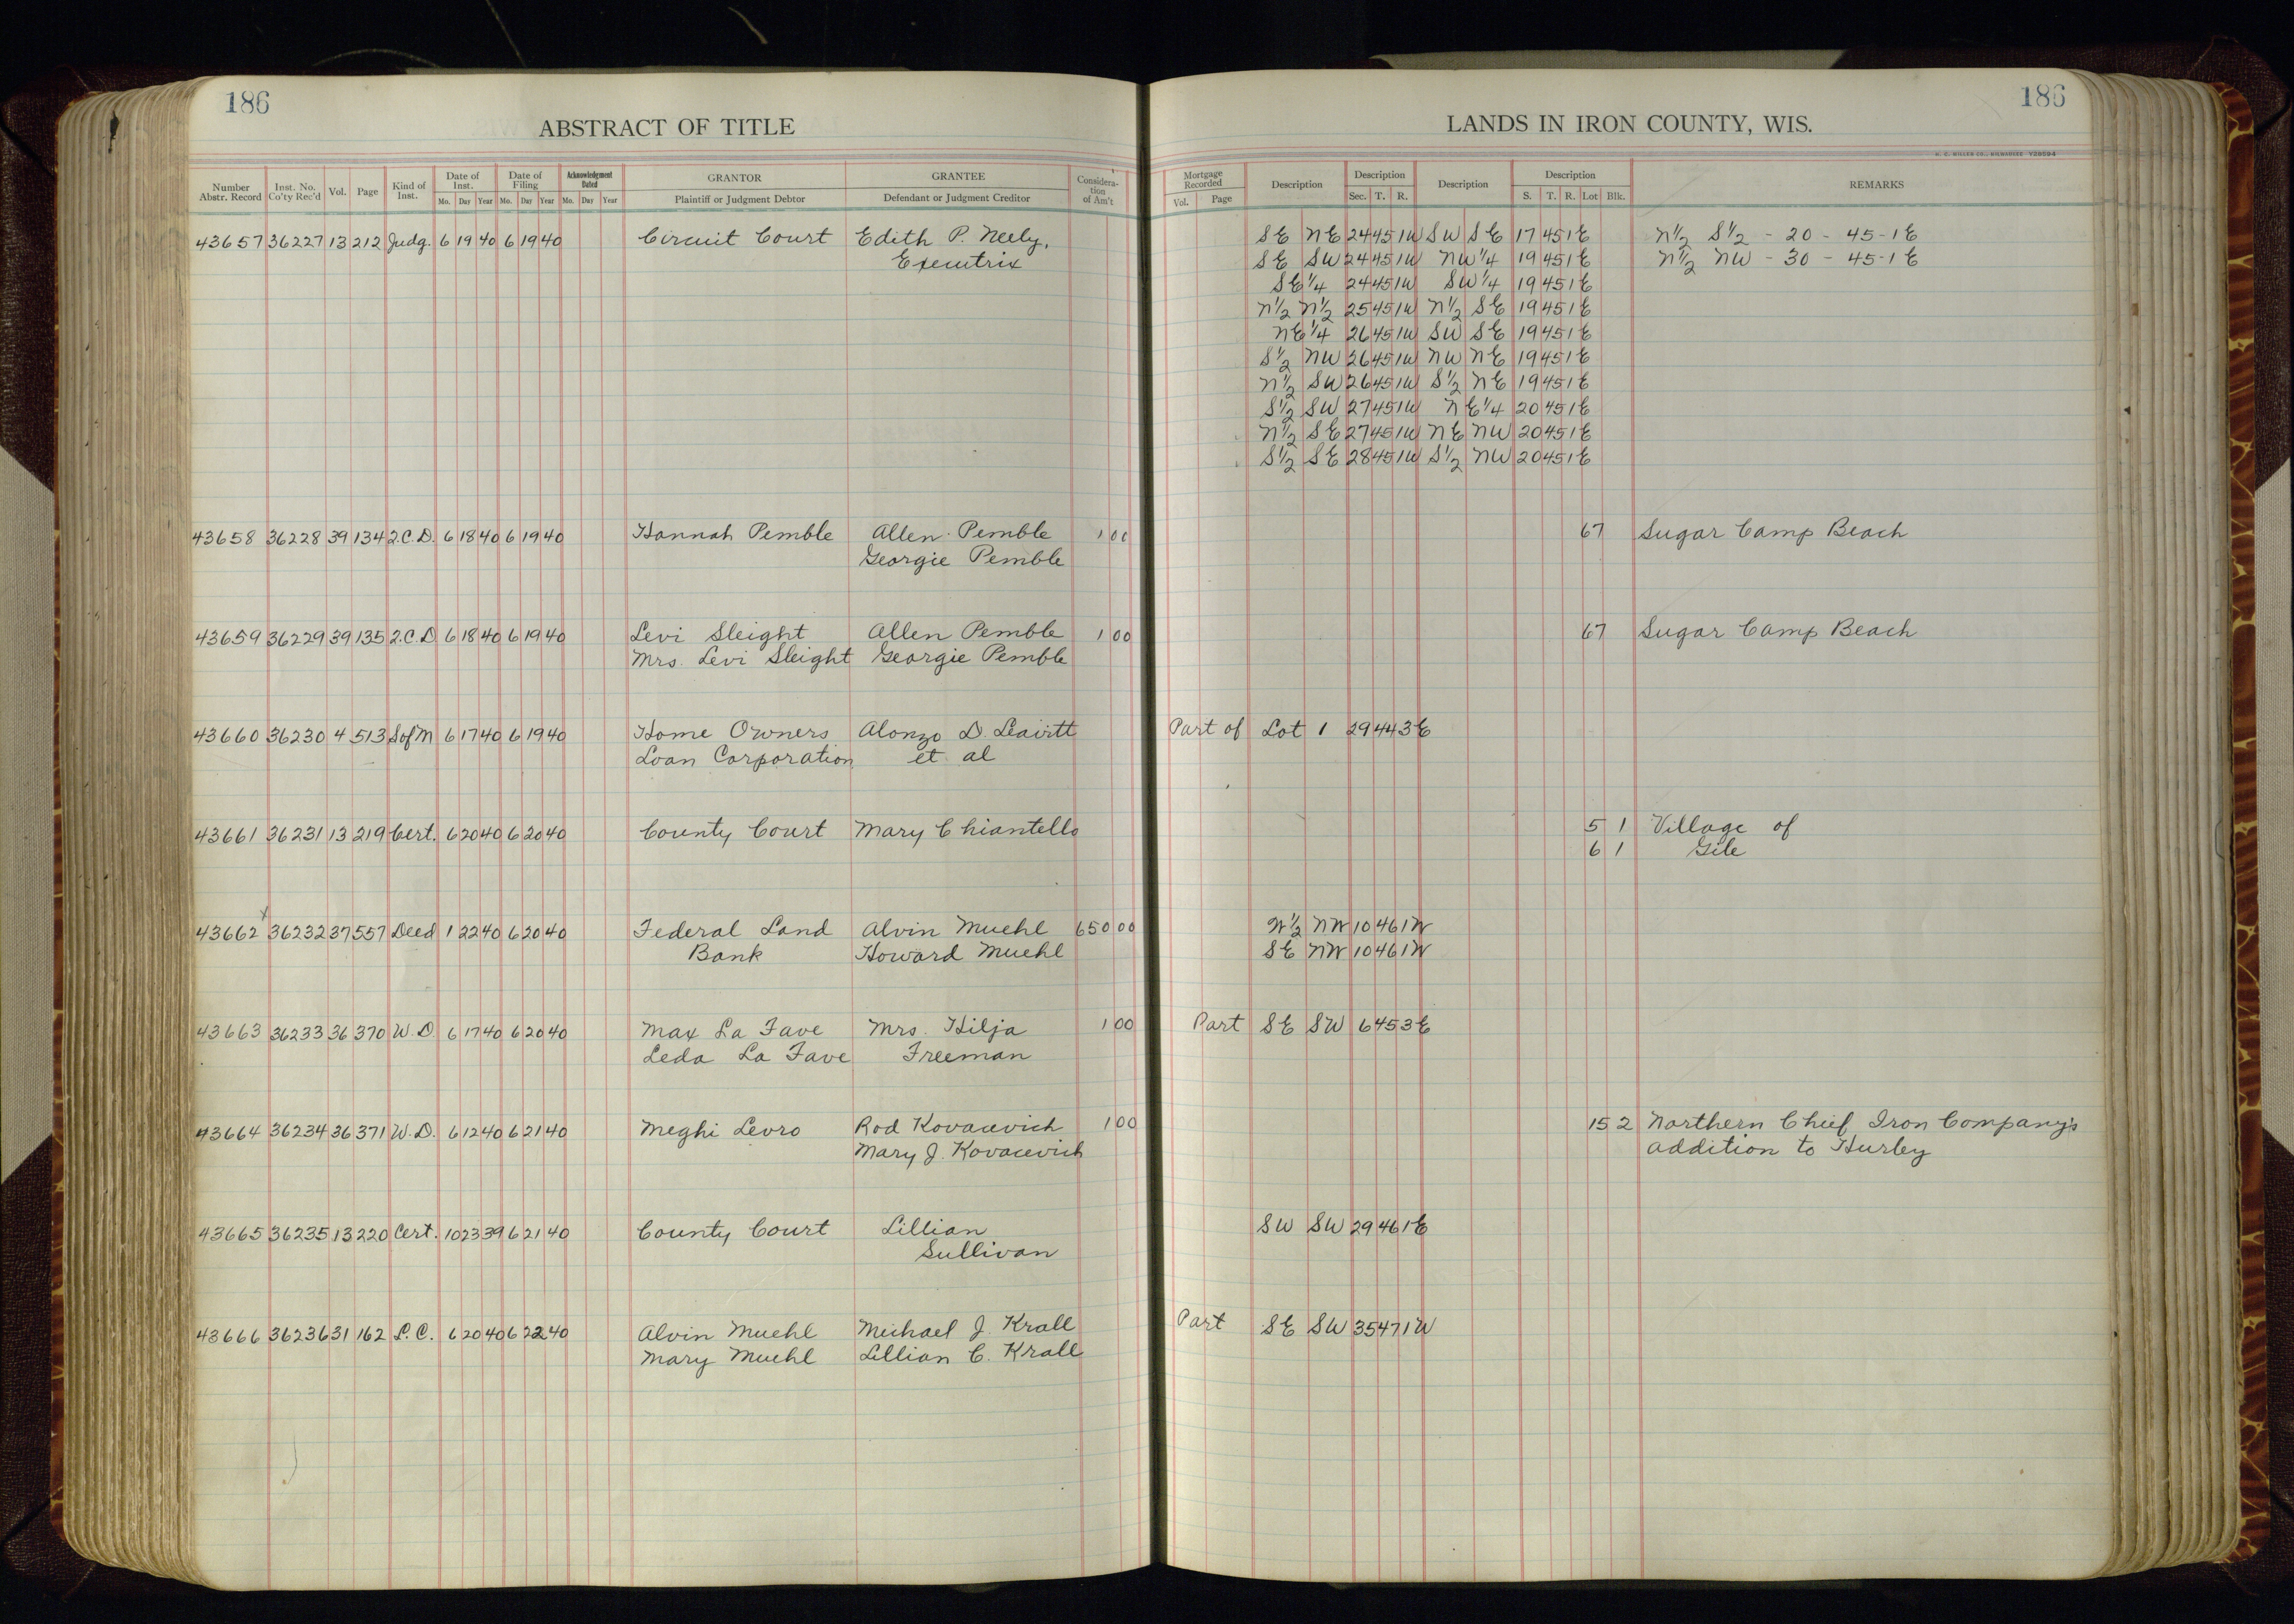 186
186
ABSTRACT OF TITLE
LANDS IN IRON COUNTY, WIS.
H. C. MILLER CO., MILWAUKEE
Number Abstr. Record Inst. No. Co'ty Rec'd Vol. Page Kind of Inst. Date of Inst. Mo. Day Year Date of Filing Mo. Day Year Acknowledgment Dated Mo. Day Year GRANTOR Plaintiff or Judgment Debtor GRANTEE Defendant or Judgment Creditor Consideration of Am't Mortgage Recorded Vol. Page Description Description Sec. T. R. Description Description S. T. R. Lot Blk. REMARKS
43657 36227 13 212 Judg. 6 19 40 6 19 40 Circuit Court Edith P. Neely, SE NE 24 45 1W SW SE 17 45 1E N½ S½ - 20 - 45-1E
Executrix SE SW 24 45 1W NW¼ 19 45 1E N½ NW - 30 - 45-1E
SE¼ 24 45 1W SW¼ 19 45 1E
N½ N½ 25 45 1W N½ SE 19 45 1E
NE¼ 26 45 1W SW SE 19 45 1E
S½ NW 26 45 1W NW NE 19 45 1E
N½ SW 26 45 1W S½ NE 19 45 1E
S½ SW 27 45 1W NE¼ 20 45 1E
N½ SE 27 45 1W NE NW 20 45 1E
S½ SE 28 45 1W S½ NW 20 45 1E
43658 36228 39 134 2.C.D. 6 18 40 6 19 40 Hannah Pemble Allen Pemble 1 00 67 Sugar Camp Beach
Georgie Pemble
43659 36229 39 135 2.C.D 6 18 40 6 19 40 Levi Sleight Allen Pemble 1 00 67 Sugar Camp Beach
Mrs. Levi Sleight Georgie Pemble
43660 36230 4 513 S of M 6 17 40 6 19 40 Home Owners Alonzo D. Leavitt Part of Lot 1 29 44 3E
Loan Corporation et al
43661 36231 13 219 Cert. 6 20 40 6 20 40 County Court Mary Chiantello 5 1 Village of
6 1 Gile
43662 x 36232 37 557 Deed 1 22 40 6 20 40 Federal Land Alvin Muehl 650 00 W½ NW 10 46 1W
Bank Howard Muehl SE NW 10 46 1W
43663 36233 36 370 W.D. 6 17 40 6 20 40 Max La Fave Mrs. Hilja 1 00 Part SE SW 6 45 3E
Leda La Fave Freeman
43664 36234 36 371 W.D. 6 12 40 6 21 40 Meghi Levro Rod Kovacevich 1 00 15 2 Northern Chief Iron Company's
Mary J. Kovacevich addition to Hurley
43665 36235 13 220 Cert. 10 23 39 6 21 40 County Court Lillian SW SW 29 46 1E
Sullivan
43666 36236 31 162 L.C. 6 20 40 6 22 40 Alvin Muehl Michael J. Krall Part SE SW 35 47 1W
Mary Muehl Lillian C. Krall